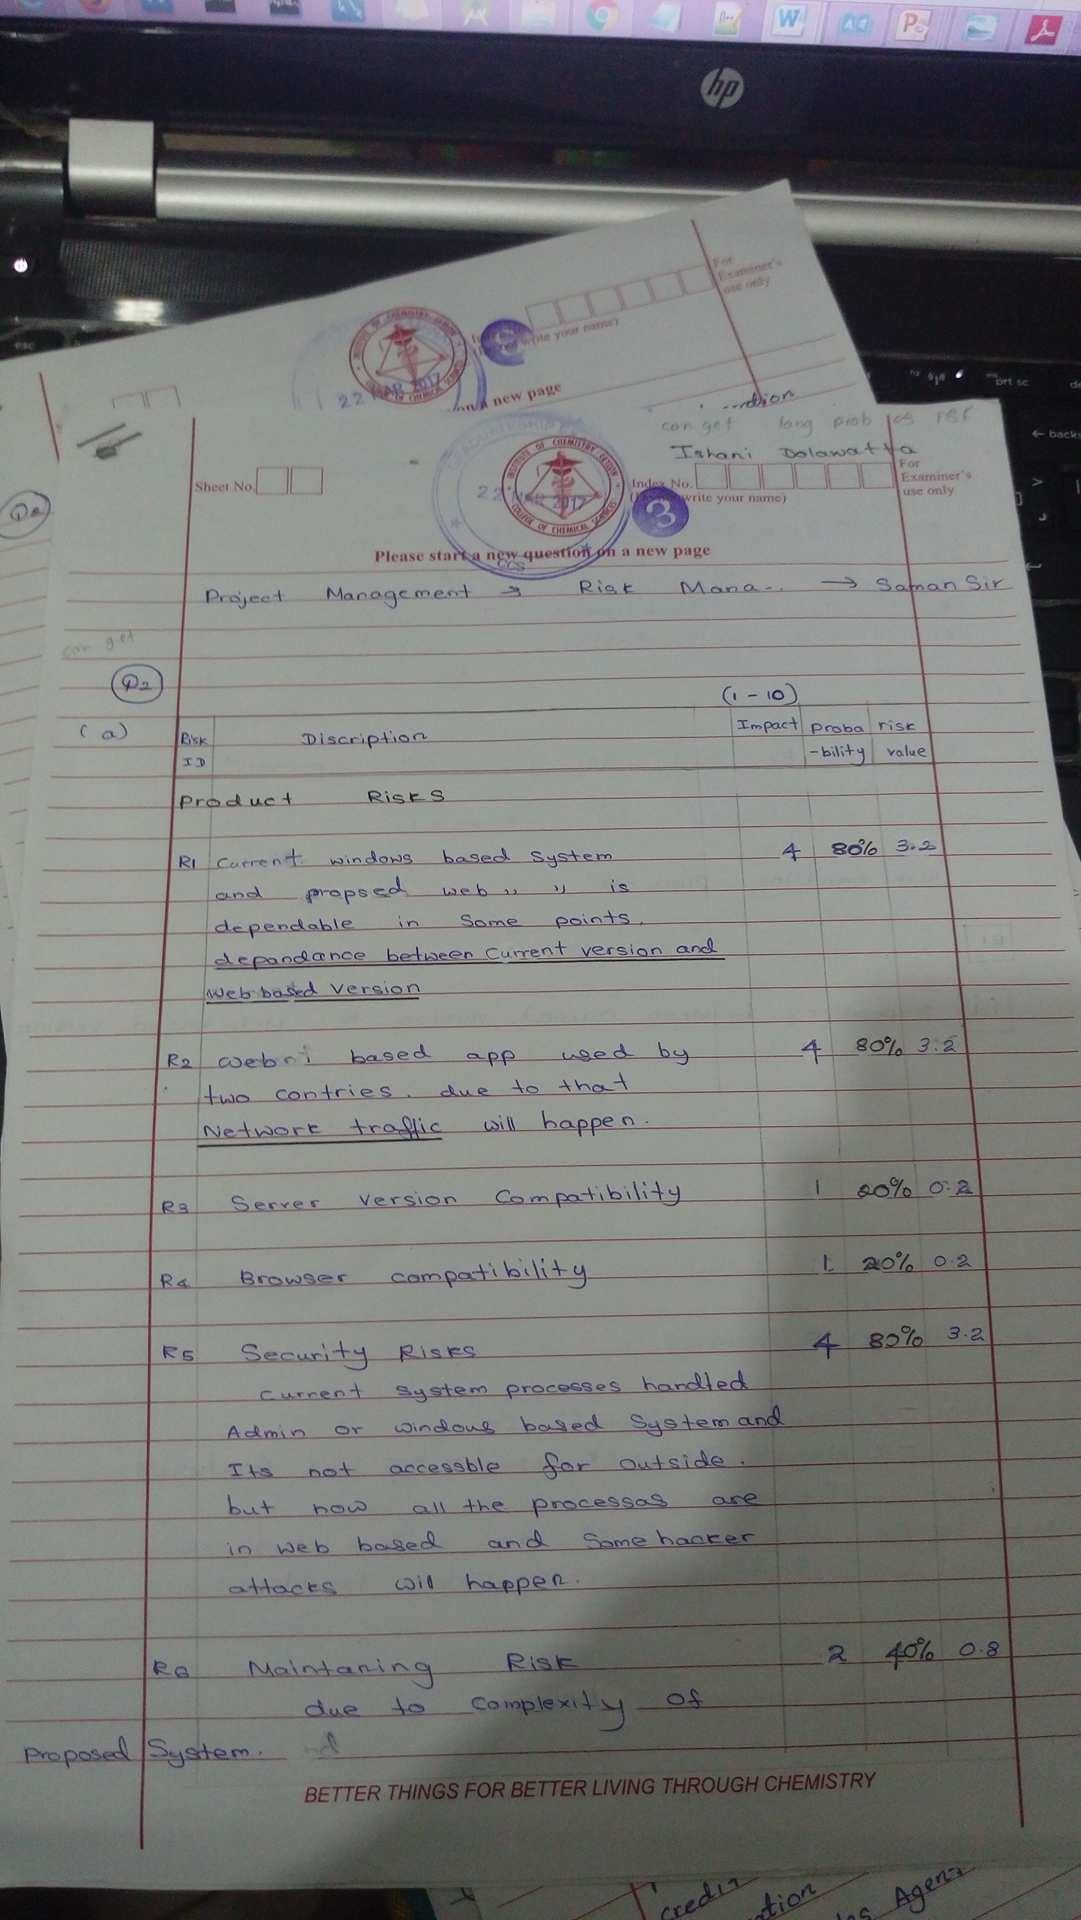 hp
esc
prt sc
← backs
For
Examiner's
use only
write your name)
22 MAR 2017
on a new page
can get long prob
Ishani Dolawatta
Sheet No.
Index No.
write your name)
For
Examiner's
use only
INSTITUTE OF CHEMISTRY CEYLON
COLLEGE OF CHEMICAL SCIENCES
22 MAR 2017
3
CCS
Please start a new question on a new page
Project Management → Risk Mana... → Saman Sir
can get
Q2
(1 - 10)
(a) Risk ID Discription Impact proba-bility risk value
Product Risks
R1 Current windows based system 4 80% 3.2
and propsed web ,, ,, is
dependable in some points.
dependance between Current version and
web based version
R2 web based app used by 4 80% 3.2
two contries. due to that
Network traffic will happen.
R3 Server version Compatibility 1 20% 0.2
R4 Browser compatibility 1 20% 0.2
R5 Security Risks 4 80% 3.2
current system processes handled
Admin or windows based System and
Its not accessble for outside.
but now all the processas are
in web based and some hacker
attacks will happen.
R6 Maintaning Risk 2 40% 0.8
due to complexity of
proposed System.
BETTER THINGS FOR BETTER LIVING THROUGH CHEMISTRY
credit
Agent